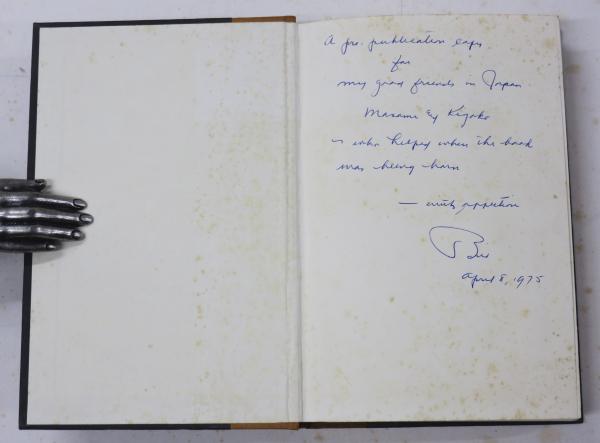 A pre-publication copy
for
my good friends in Japan.
Masami & Kiyoko
who helped when the book
was being born
— with affection
April 8, 1975